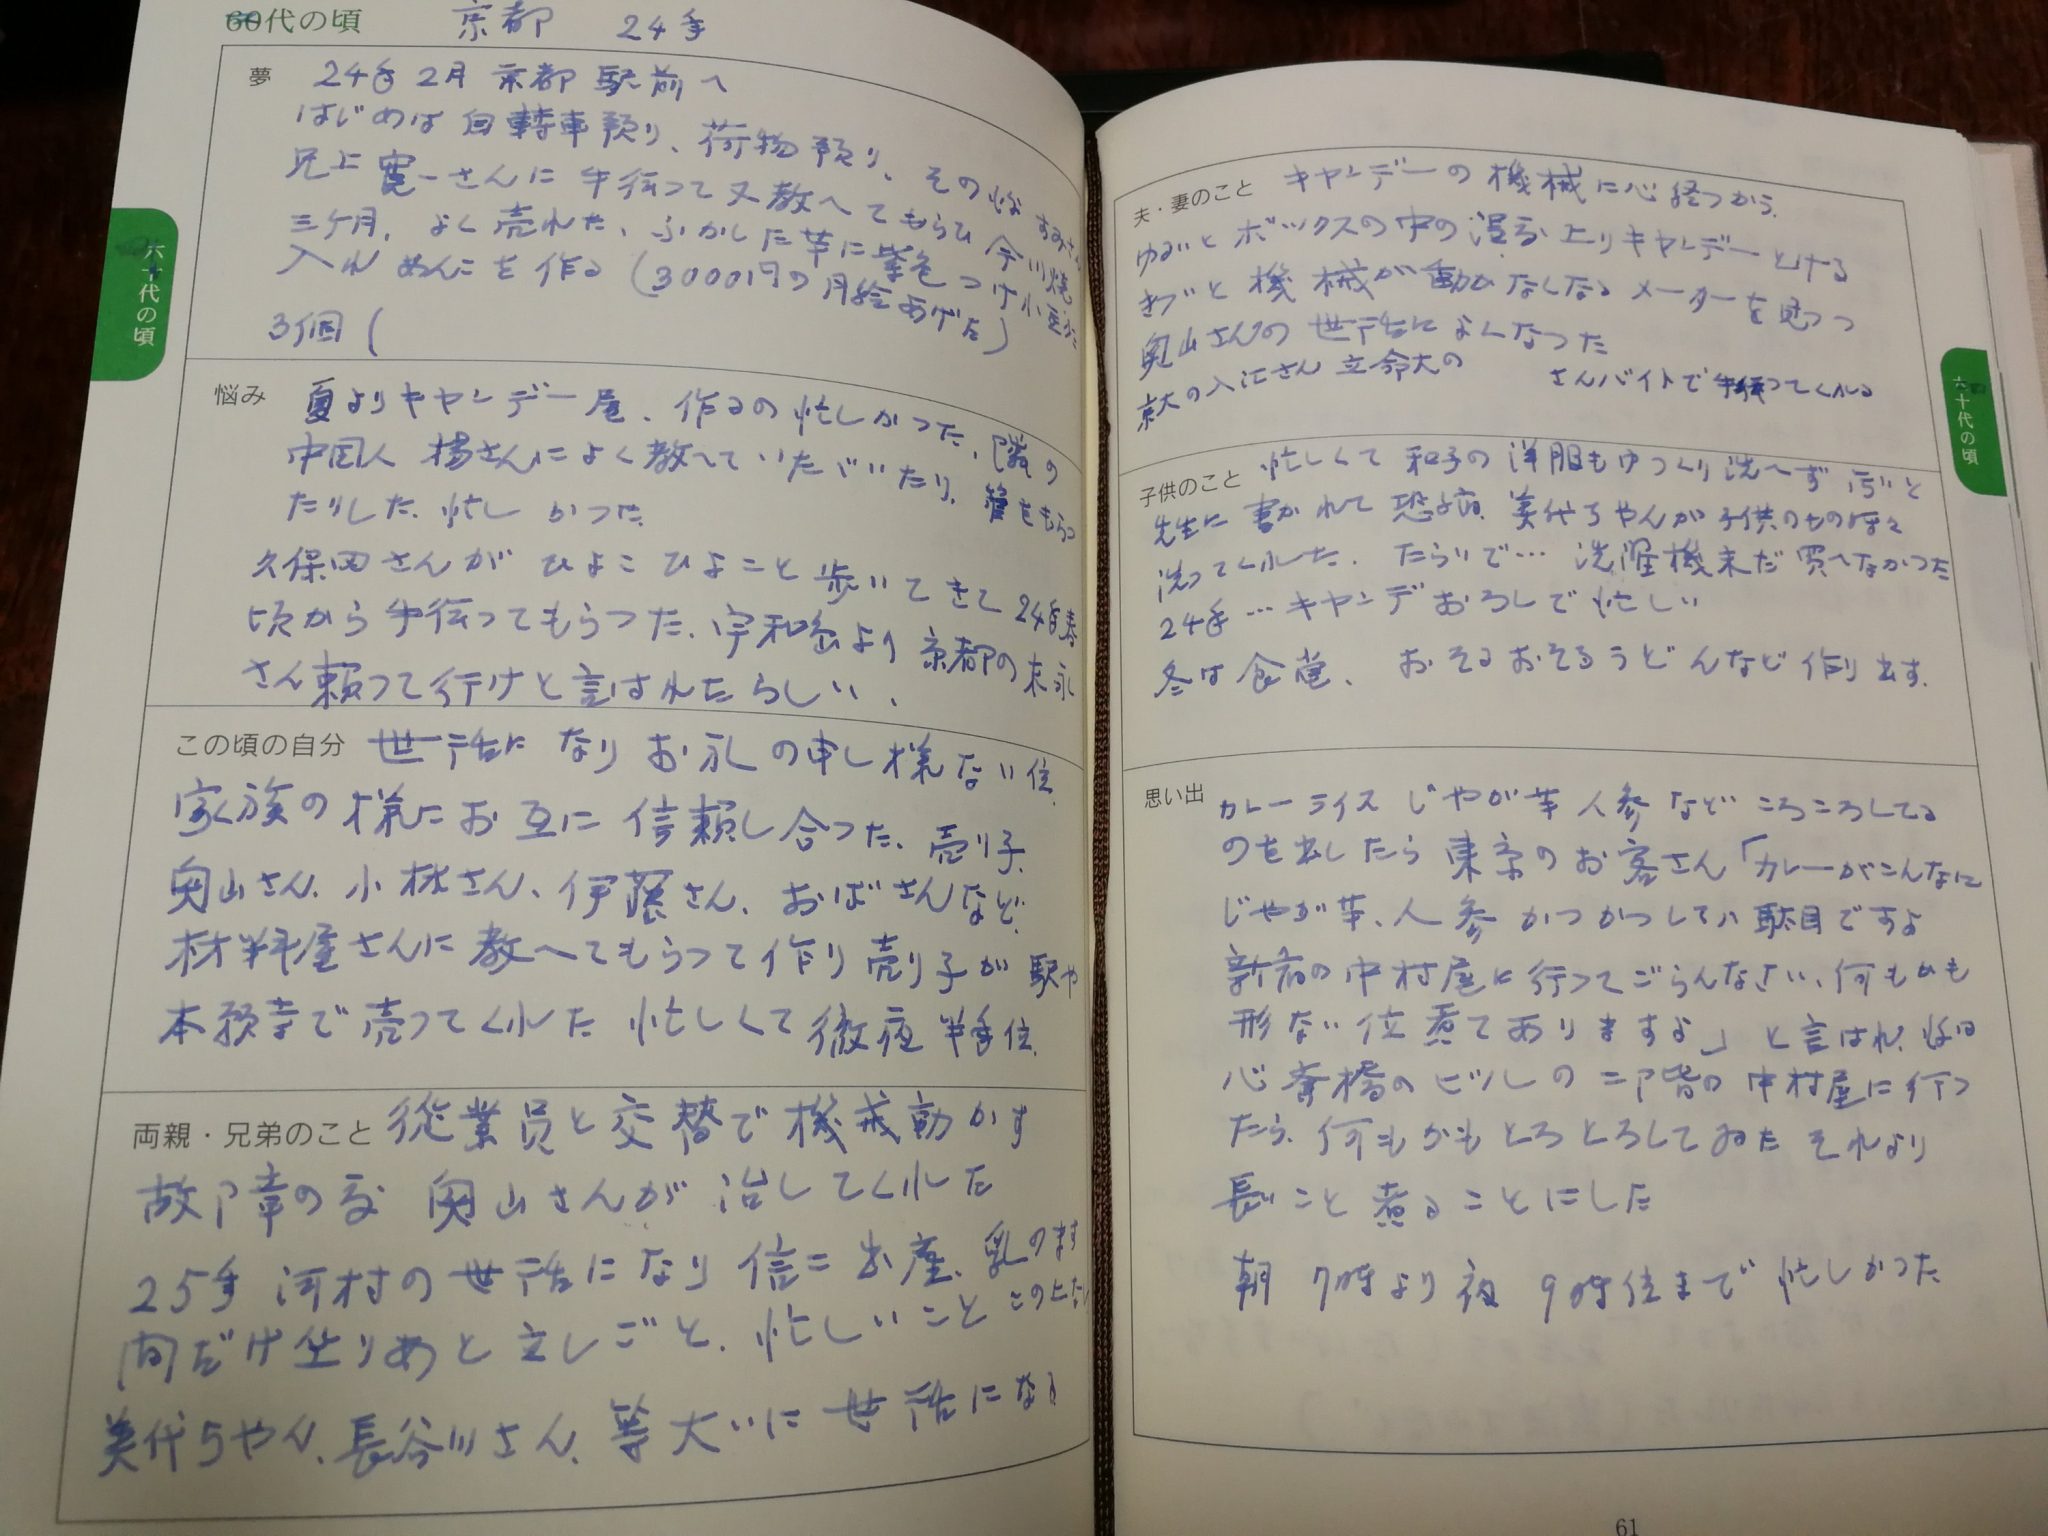 60代の頃 京都 24年
六十代の頃
夢 24年2月 京都駅前へ
はじめは自轉車預り、荷物預り、その後
兄上寛一さんに手伝って又教へてもらひ 今川焼
三ヶ月、よく売れた、ふかした芋に紫色つけ小豆
入れあんこを作る(3000円の月給あげた)
3個(
悩み 夏よりキャンデー屋、作るの忙しかつた、隣の
中国人 楊さんによく教へていただいたり、をもらつ
たりした 忙しかつた
久保田さんがひよこひよこと歩いてきて24年春
頃から手伝ってもらつた、宇和島より京都の末永
さん頼って行けと言はれたらしい、
この頃の自分 世話になりお礼の申し様ない位
家族の様にお互に信頼し合った、売り子
奥山さん、小林さん、伊藤さん、おばさんなど、
材料屋さんに教へてもらって作り売り子が駅や
本願寺で売ってくれた 忙しくて徹夜半年位
両親・兄弟のこと 従業員と交替で機械動かす
故障の度 奥山さんが治してくれた
25年 河村の世話になり 信二出産、乳のます
間だけ坐りあと立しごと、忙しいことこの上ない
美代ちやん、長谷川さん、等大いに世話になる
六十代の頃
夫・妻のこと キャンデーの機械に心経つかう、
ゆるいとボックスの中の温度上りキャンデーとける
きついと機械が動かなくなる メーターを見つつ
奥山さんの世話によくなつた
京大の入江さん 立命大の さんバイトで手伝ってくれる
子供のこと 忙しくて 和子の洋服もゆつくり洗へず 汚いと
先生に書かれて 美代ちやんが子供のもの時々
洗ってくれた、たらいで… 洗濯機未だ買へなかつた
24年…キャンデおろしで忙しい
冬は食堂、おそるおそるうどんなど作り出す、
思い出 カレーライス じやが芋 人参などころころしてる
のを出したら東京のお客さん「カレーがこんなに
じやが芋、人参 かつかつしてい駄目ですよ
新宿の中村屋に行つてごらんなさい、何もかも
形ない位煮てありますよ」と言はれ、後日
心斎橋のビルの二階の中村屋に行つ
たら、何もかもとろとろしてゐた それより
長いこと煮ることにした
朝7時より夜9時位まで忙しかつた
61